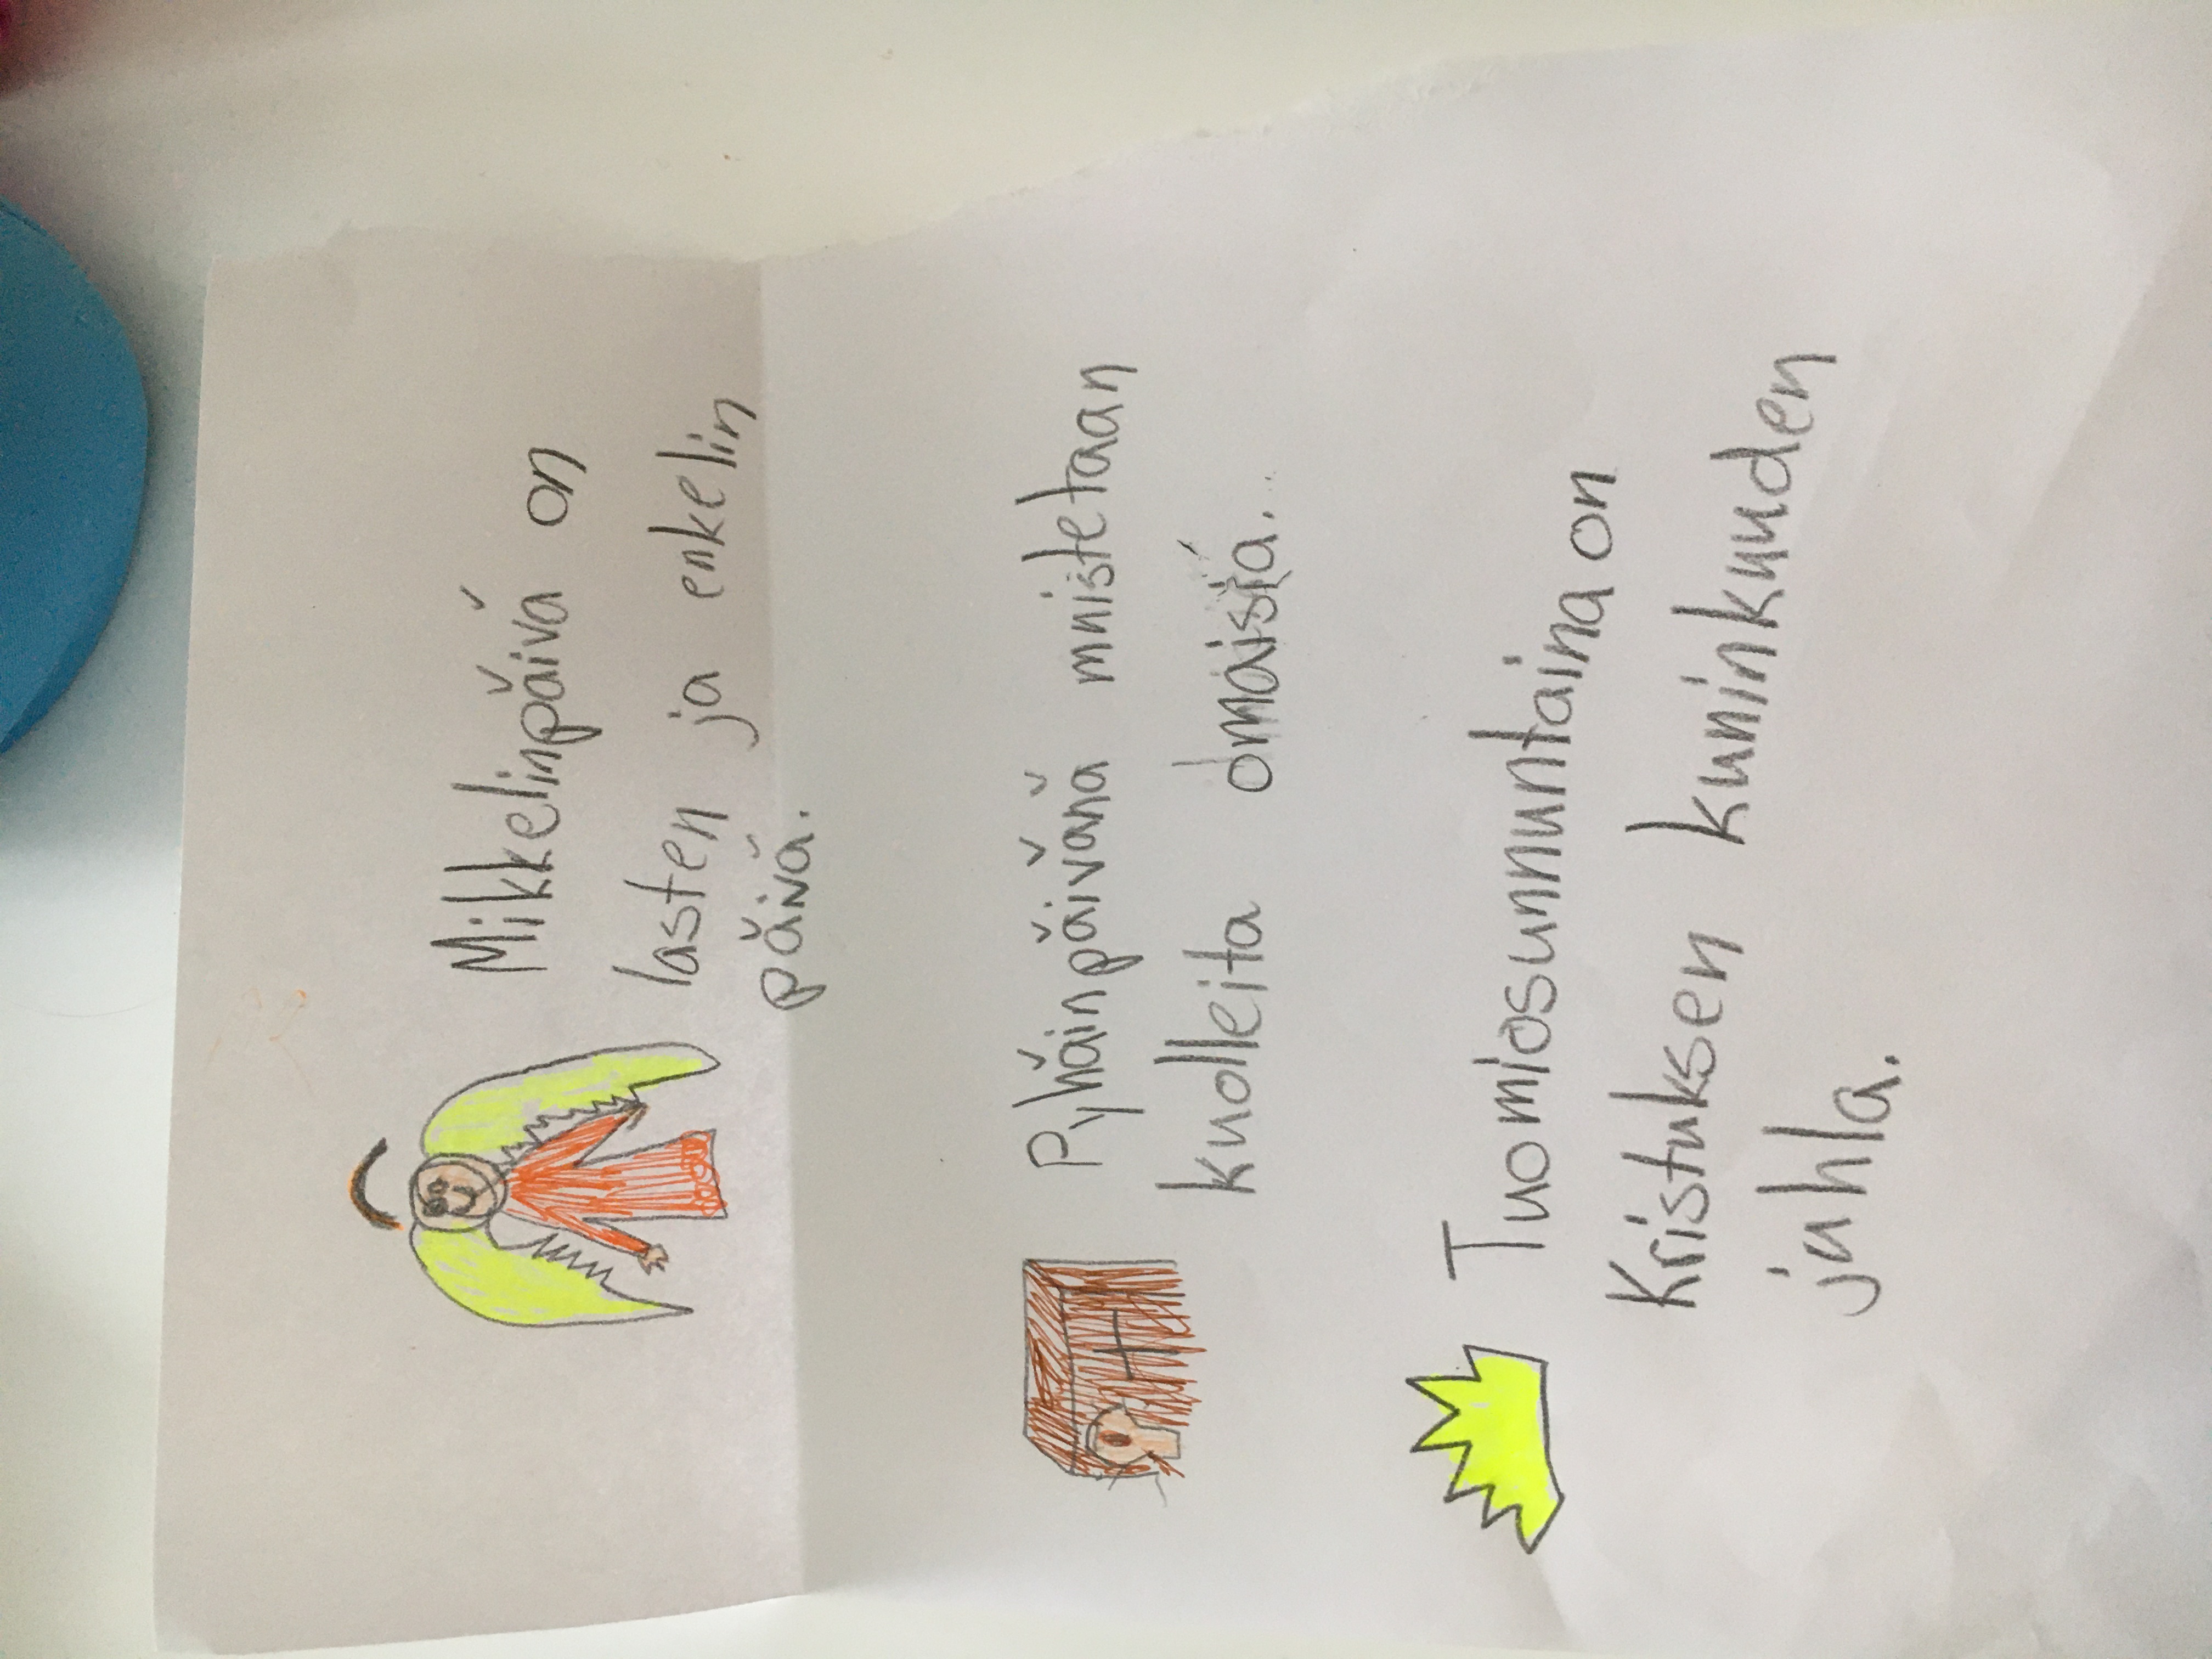 Mikkelinpäivä on
lasten ja enkelin
päivä.
Pyhäinpäivänä mnistetaan
kuolleita omaisia.
Tuomiosunnuntaina on
Kristuksen kuninkuuden
juhla.